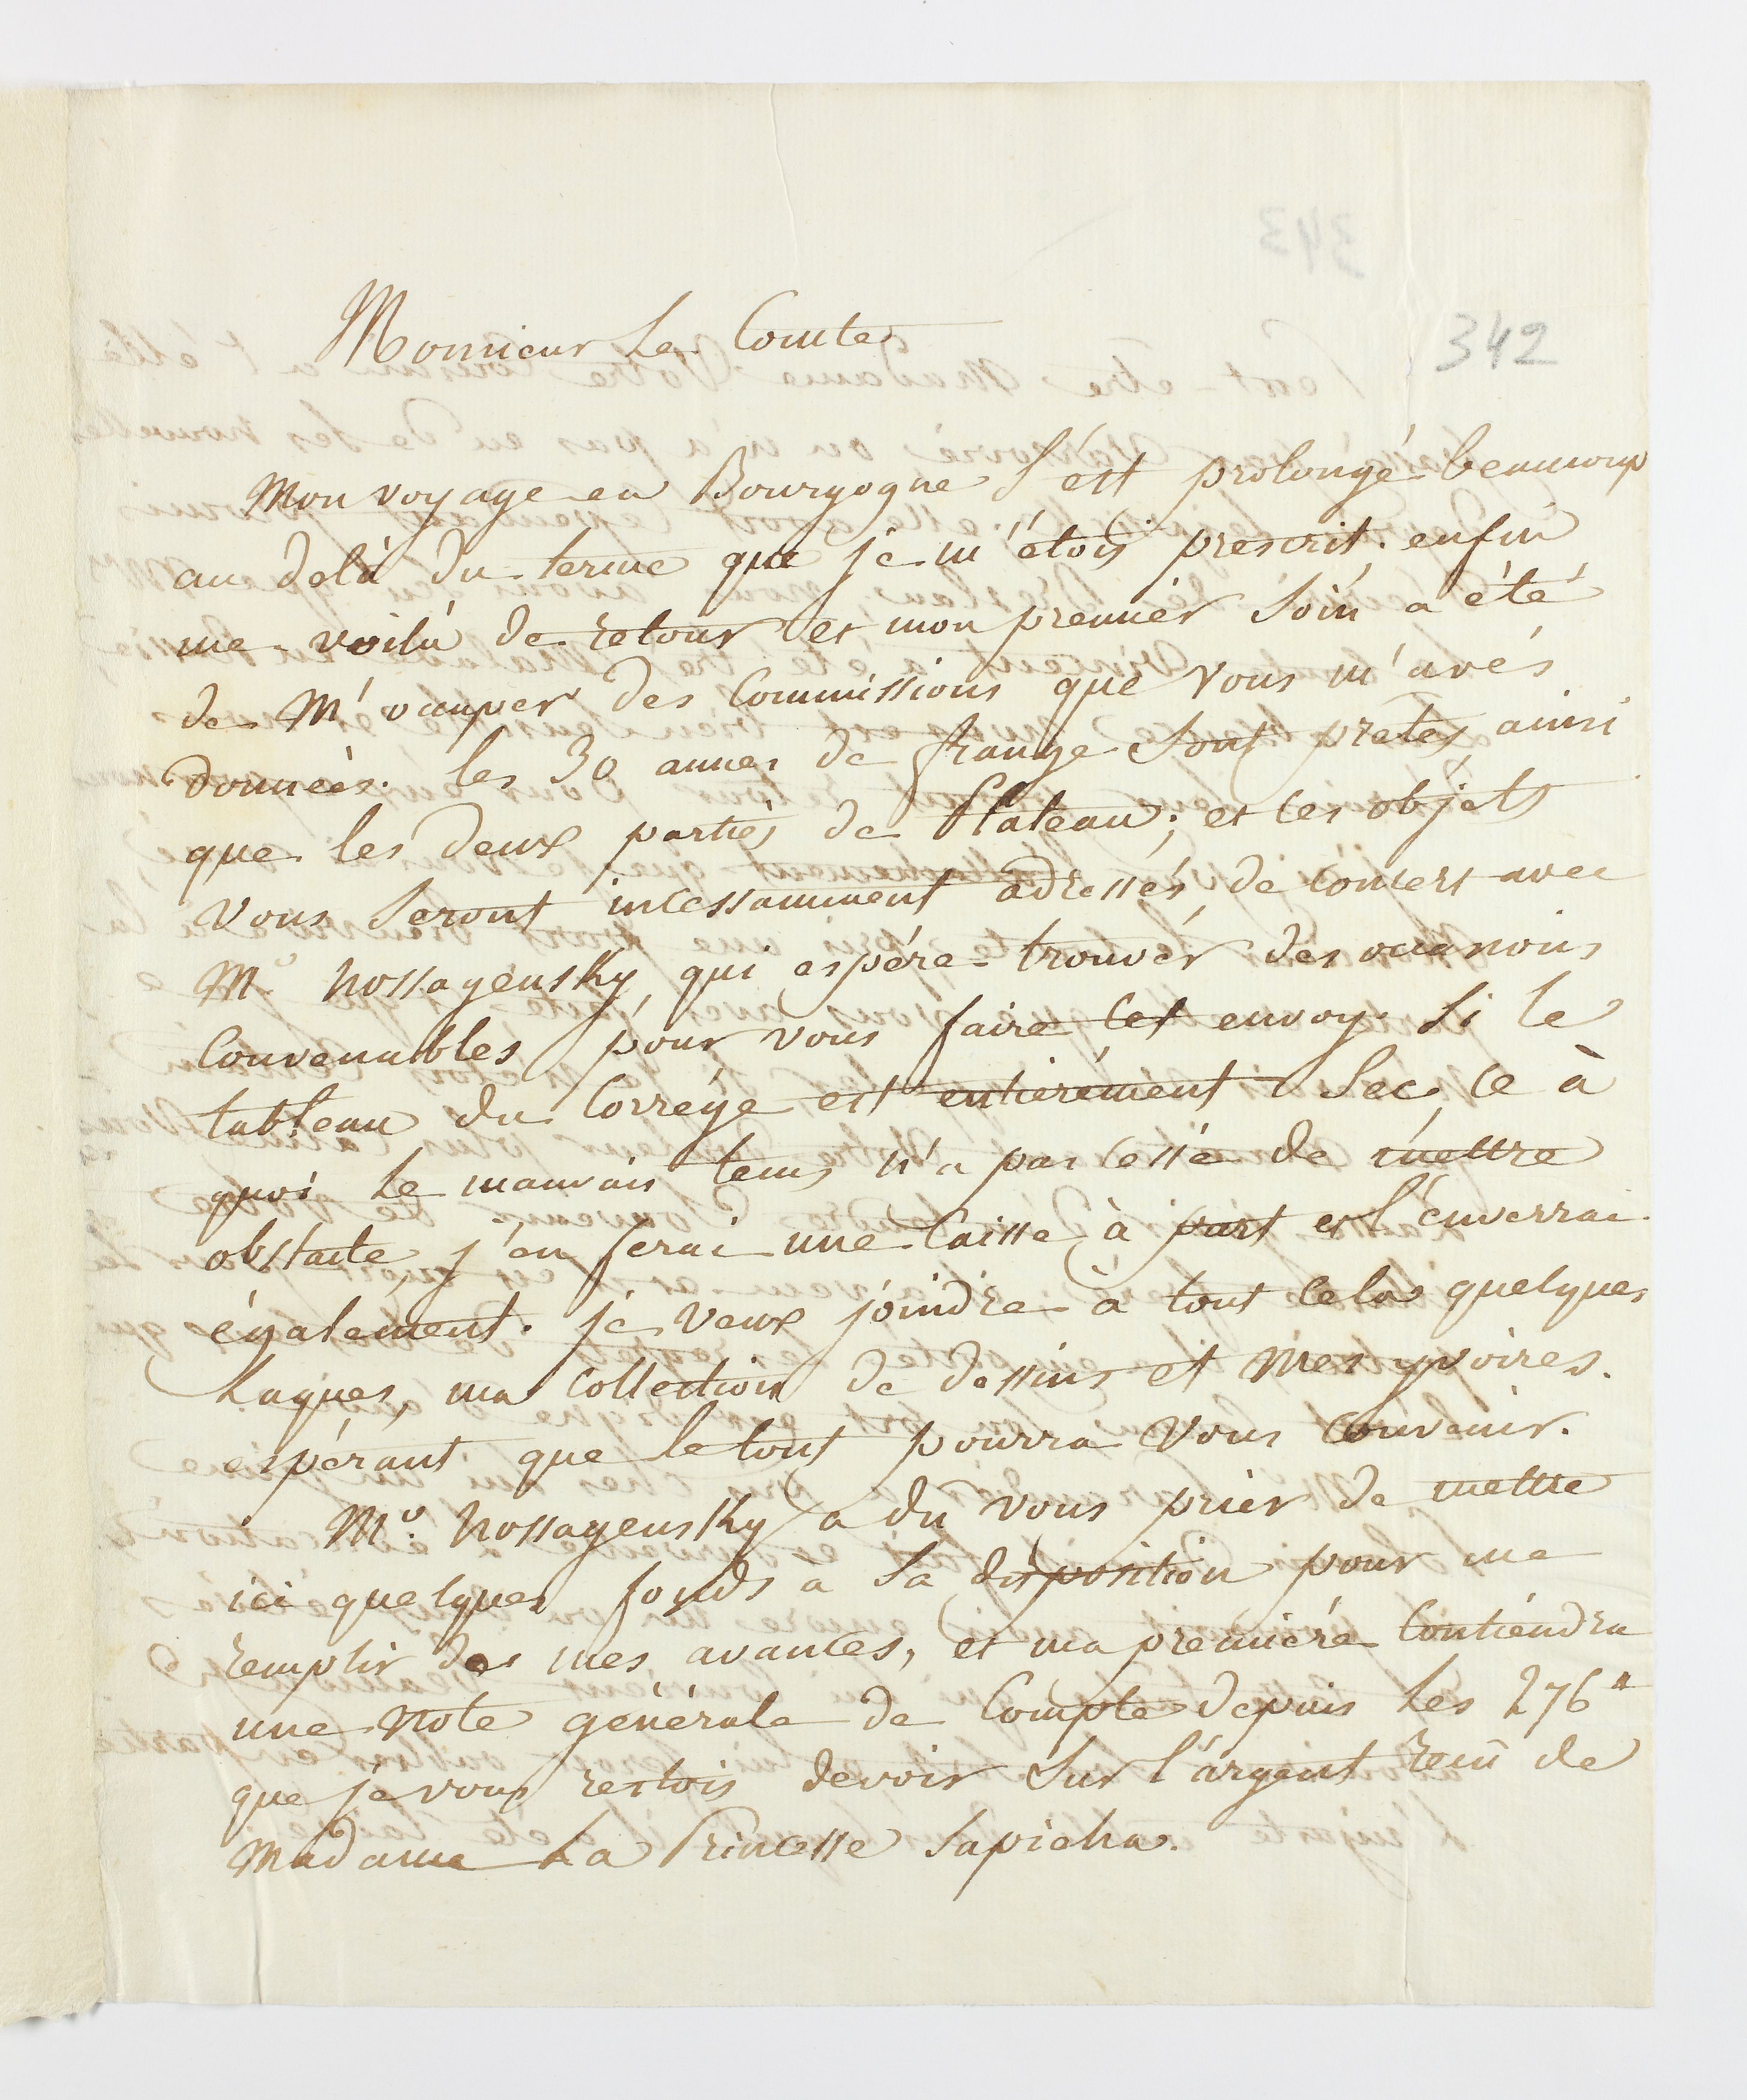 342
Monsieur Le Comte
Mon voyage en Bourgogne s'est prolongé beaucoup
au delà du terme que je m'étois prescrit. enfin
me voilà de retour et mon premier soin a été
de m'occuper des Commissions que vous m'avés
données. les 30 aunes de frange sont prêtes, ainsi
que les deux parties de Plateau; et ces objets
vous seront incessamment adressés, de concert avec
Mr. Nossagensky, qui espére trouver des occasions
Convenables pour vous faire cet envoy. Si le
tableau du Corrége est entiérement sec, ce à
quoi le mauvais tems n'a pas cessé de mettre
obstacle, j'en ferai une Caisse à part et l'enverrai
également. je veux joindre à tout cela quelques
Laques, ma collection de dessins et mes yvoires.
espérant que le tout pourra vous convenir.
Mr. Nossagensky a du vous prier de mettre
ici quelques fonds à sa disposition pour me
remplir de mes avances, et ma première contiendra
une note générale de Compte depuis les 276#
que je vous restois devoir sur l'argent reçu de
Madame La Princesse Sapieha.